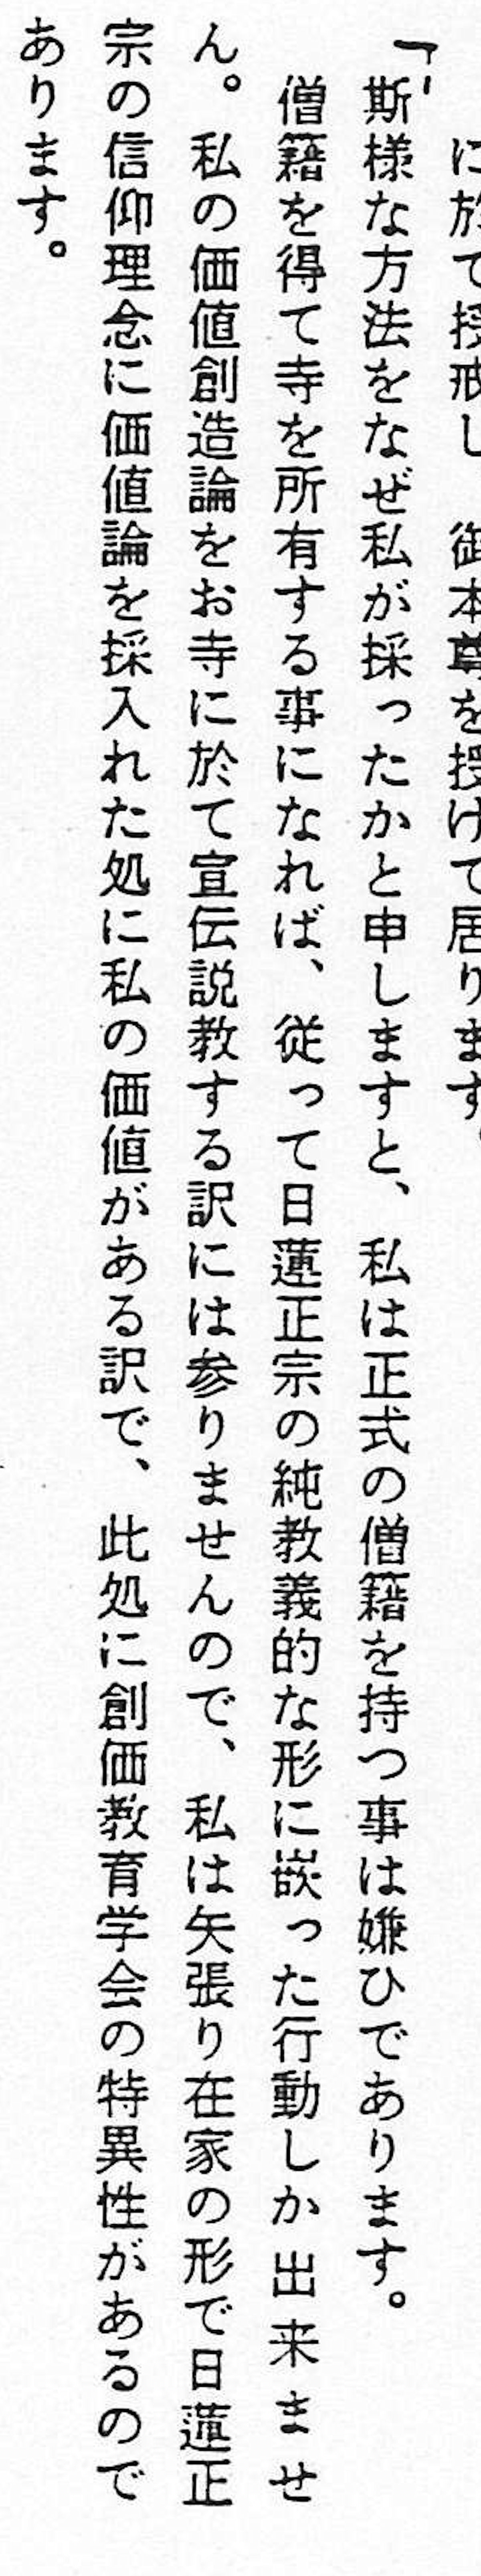 に於て授戒し 御本尊を授けて居ります。
「斯様な方法をなぜ私が採ったかと申しますと、私は正式の僧籍を持つ事は嫌ひであります。
僧籍を得て寺を所有する事になれば、従って日蓮正宗の純教義的な形に嵌った行動しか出来ませ
ん。私の価値創造論をお寺に於て宣伝説教する訳には参りませんので、私は矢張り在家の形で日蓮正
宗の信仰理念に価値論を採入れた処に私の価値がある訳で、此処に創価教育学会の特異性があるので
あります。